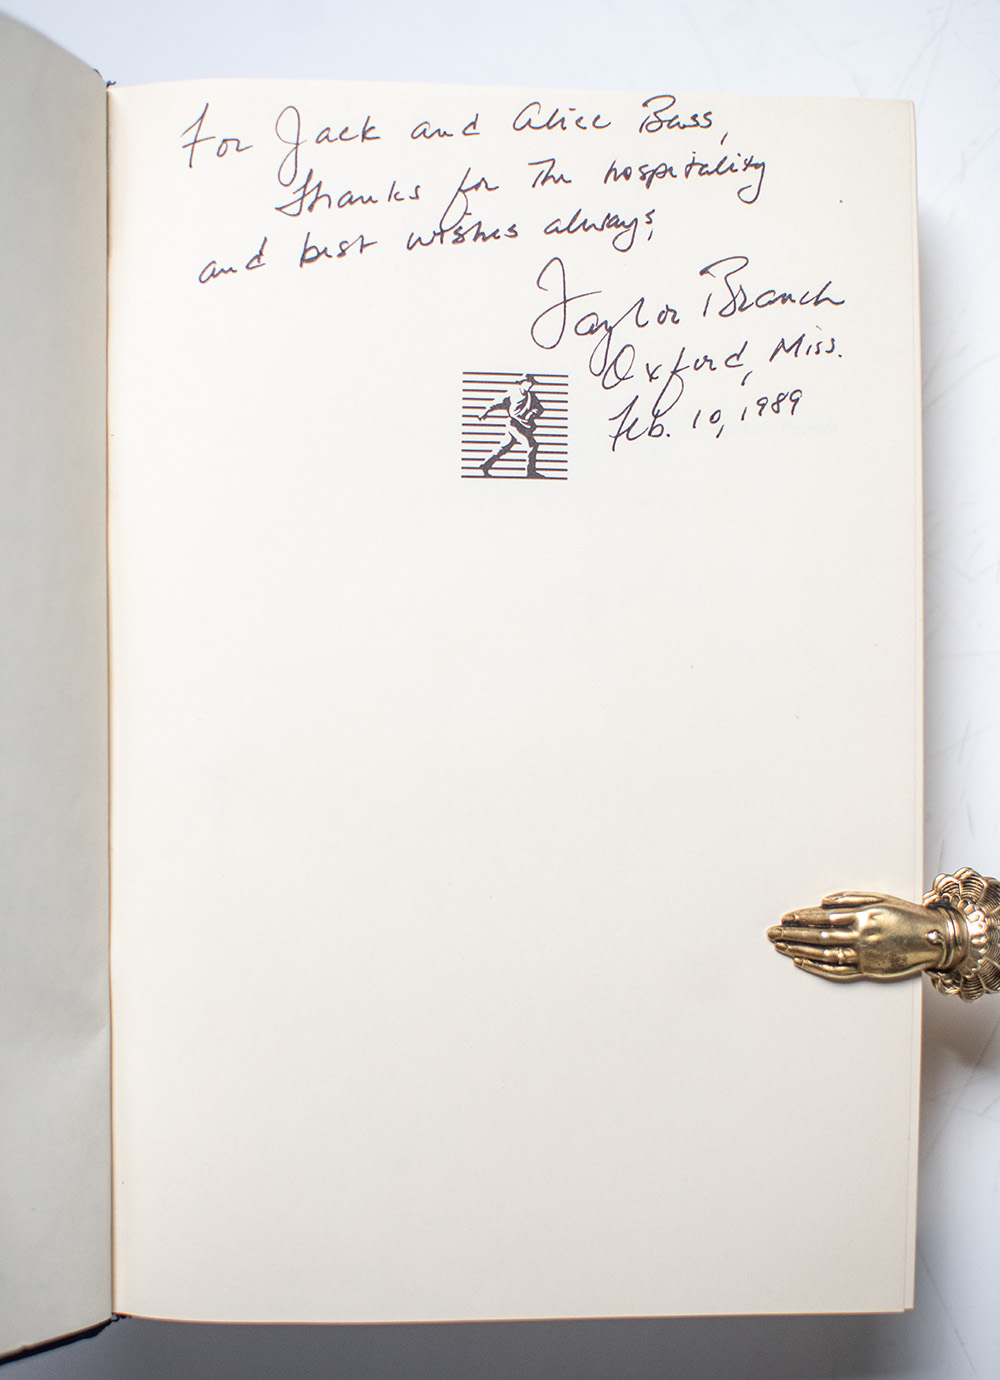 For Jack and Alice Bass,
Thanks for the hospitality
and best wishes always,
Taylor Branch
Oxford, Miss.
Feb. 10, 1989